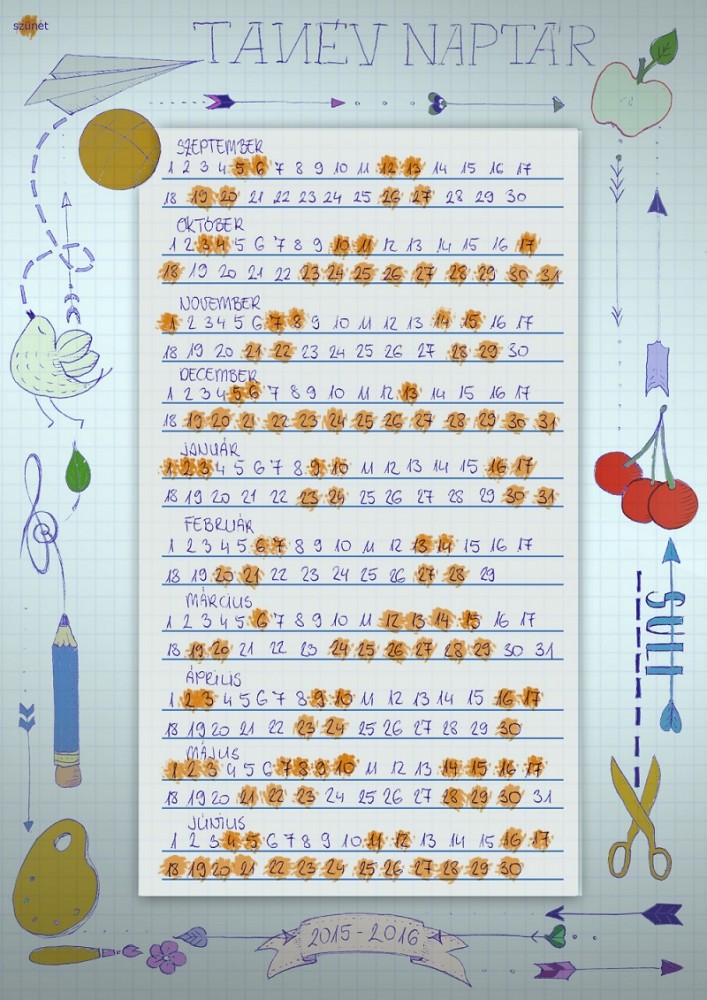 szünet
TANÉV NAPTÁR
SZEPTEMBER
1 2 3 4 5 6 7 8 9 10 11 12 13 14 15 16 17
18 19 20 21 22 23 24 25 26 27 28 29 30
OKTÓBER
1 2 3 4 5 6 7 8 9 10 11 12 13 14 15 16 17
18 19 20 21 22 23 24 25 26 27 28 29 30 31
NOVEMBER
1 2 3 4 5 6 7 8 9 10 11 12 13 14 15 16 17
18 19 20 21 22 23 24 25 26 27 28 29 30
DECEMBER
1 2 3 4 5 6 7 8 9 10 11 12 13 14 15 16 17
18 19 20 21 22 23 24 25 26 27 28 29 30 31
JANUÁR
1 2 3 4 5 6 7 8 9 10 11 12 13 14 15 16 17
18 19 20 21 22 23 24 25 26 27 28 29 30 31
FEBRUÁR
1 2 3 4 5 6 7 8 9 10 11 12 13 14 15 16 17
18 19 20 21 22 23 24 25 26 27 28 29
MÁRCIUS
1 2 3 4 5 6 7 8 9 10 11 12 13 14 15 16 17
18 19 20 21 22 23 24 25 26 27 28 29 30 31
SULI
ÁPRILIS
1 2 3 4 5 6 7 8 9 10 11 12 13 14 15 16 17
18 19 20 21 22 23 24 25 26 27 28 29 30
MÁJUS
1 2 3 4 5 6 7 8 9 10 11 12 13 14 15 16 17
18 19 20 21 22 23 24 25 26 27 28 29 30 31
JÚNIUS
1 2 3 4 5 6 7 8 9 10 11 12 13 14 15 16 17
18 19 20 21 22 23 24 25 26 27 28 29 30
2015-2016